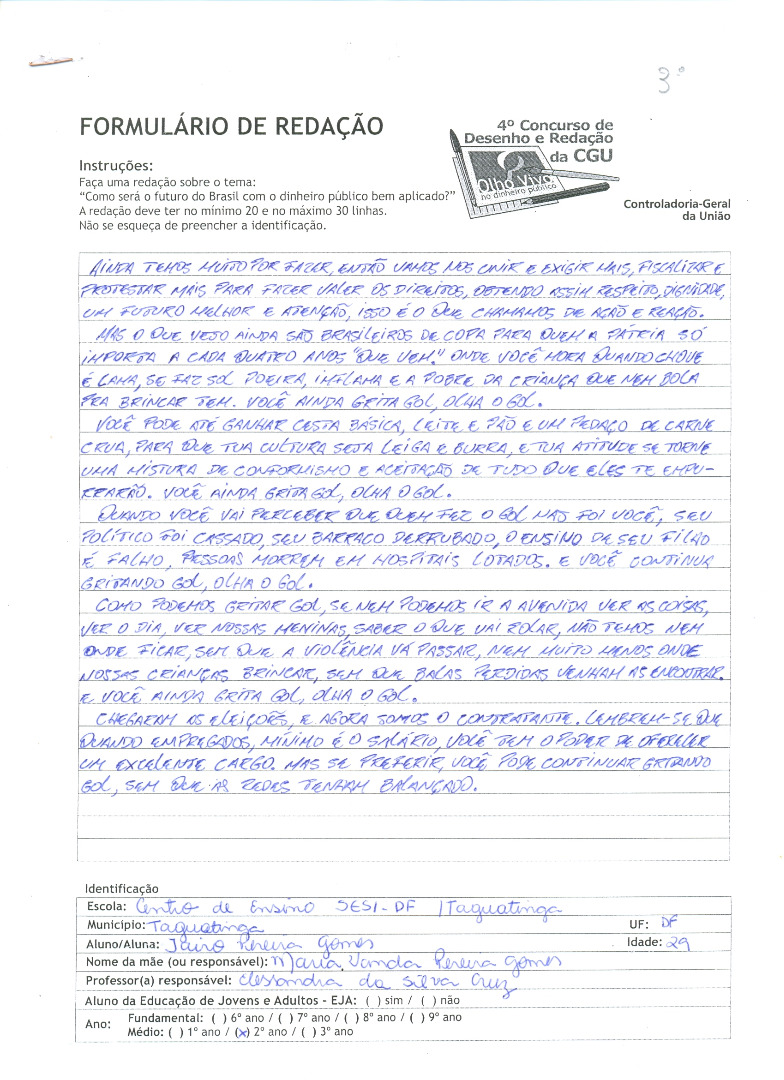 3º
FORMULÁRIO DE REDAÇÃO
4º Concurso de
Desenho e Redação
da CGU
Olho Vivo
no dinheiro público
Controladoria-Geral
da União
Instruções:
Faça uma redação sobre o tema:
“Como será o futuro do Brasil com o dinheiro público bem aplicado?”
A redação deve ter no mínimo 20 e no máximo 30 linhas.
Não se esqueça de preencher a identificação.
AINDA TEMOS MUITO POR FAZER, ENTÃO VAMOS NOS UNIR E EXIGIR MAIS, FISCALIZAR E
PROTESTAR MAIS PARA FAZER VALER OS DIREITOS, OBTENDO ASSIM RESPEITO, DIGNIDADE,
UM FUTURO MELHOR E ATENÇÃO, ISSO É O QUE CHAMAMOS DE AÇÃO E REAÇÃO.
MAS O QUE VEJO AINDA SÃO BRASILEIROS DE COPA PARA QUEM A PÁTRIA SÓ
IMPORTA A CADA QUATRO ANOS "QUE VEM." ONDE VOCÊ MORA QUANDO CHOVE
É LAMA, SE FAZ SOL POEIRA, INFLAMA E A POBRE DA CRIANÇA QUE NEM BOLA
PRA BRINCAR TEM. VOCÊ AINDA GRITA GOL, OLHA O GOL.
VOCÊ PODE ATÉ GANHAR CESTA BÁSICA, LEITE E PÃO E UM PEDAÇO DE CARNE
CRUA, PARA QUE TUA CULTURA SEJA LEIGA E BURRA, E TUA ATITUDE SE TORNE
UMA MISTURA DE CONFORMISMO E ACEITAÇÃO DE TUDO QUE ELES TE EMPU-
RRARÃO. VOCÊ AINDA GRITA GOL, OLHA O GOL.
QUANDO VOCÊ VAI PERCEBER QUE QUEM FEZ O GOL NÃO FOI VOCÊ, SEU
POLÍTICO FOI CASSADO, SEU BARRACO DERRUBADO, O ENSINO DE SEU FILHO
É FALHO, PESSOAS MORREM EM HOSPITAIS LOTADOS. E VOCÊ CONTINUA
GRITANDO GOL, OLHA O GOL.
COMO PODEMOS GRITAR GOL, SE NEM PODEMOS IR A AVENIDA VER AS COISAS,
VER O DIA, VER NOSSAS MENINAS, SABER O QUE VAI ROLAR, NÃO TEMOS NEM
ONDE FICAR, SEM QUE A VIOLÊNCIA VÁ PASSAR, NEM MUITO MENOS ONDE
NOSSAS CRIANÇAS BRINCAR, SEM QUE BALAS PERDIDAS VENHAM AS ENCONTRAR.
E VOCÊ AINDA GRITA GOL, OLHA O GOL.
CHEGARAM AS ELEIÇÕES, E AGORA SOMOS O CONTRATANTE. LEMBREM-SE QUE
QUANDO EMPREGADOS, MÍNIMO É O SALÁRIO, VOCÊ TEM O PODER DE OFERECER
UM EXCELENTE CARGO. MAS SE PREFERIR, VOCÊ PODE CONTINUAR GRITANDO
GOL, SEM QUE AS REDES TENHAM BALANÇADO.
Identificação
Escola: Centro de Ensino SESI-DF / Taguatinga
Município: Taguatinga UF: DF
Aluno/Aluna: Jairo Pereira Gomes Idade: 29
Nome da mãe (ou responsável): Maria Vanda Pereira Gomes
Professor(a) responsável: Clessandra da Silva Cruz
Aluno da Educação de Jovens e Adultos - EJA: ( ) sim / ( ) não
Ano: Fundamental: ( ) 6º ano / ( ) 7º ano / ( ) 8º ano / ( ) 9º ano
Médio: ( ) 1º ano / (x) 2º ano / ( ) 3º ano